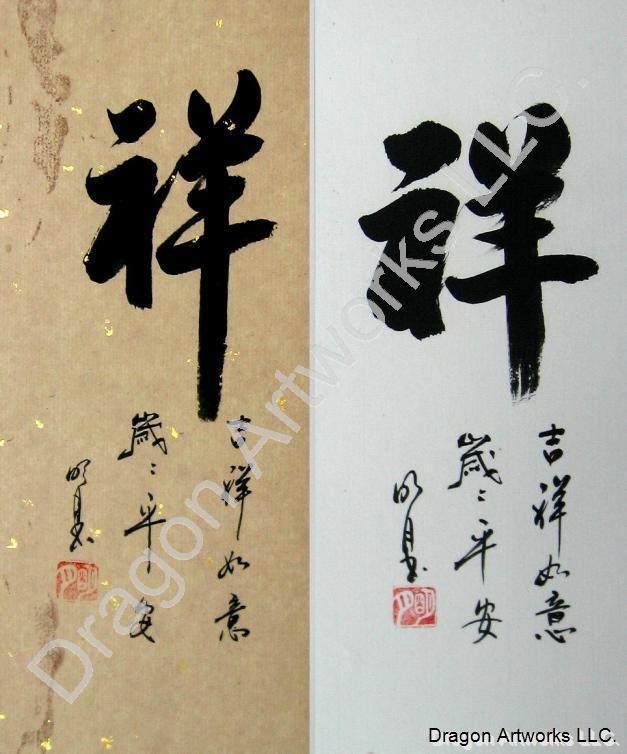 祥
吉祥如意
歲々平安
明月书
祥
吉祥如意
歲々平安
明月书
Dragon Artworks LLC.
Dragon Artworks LLC.